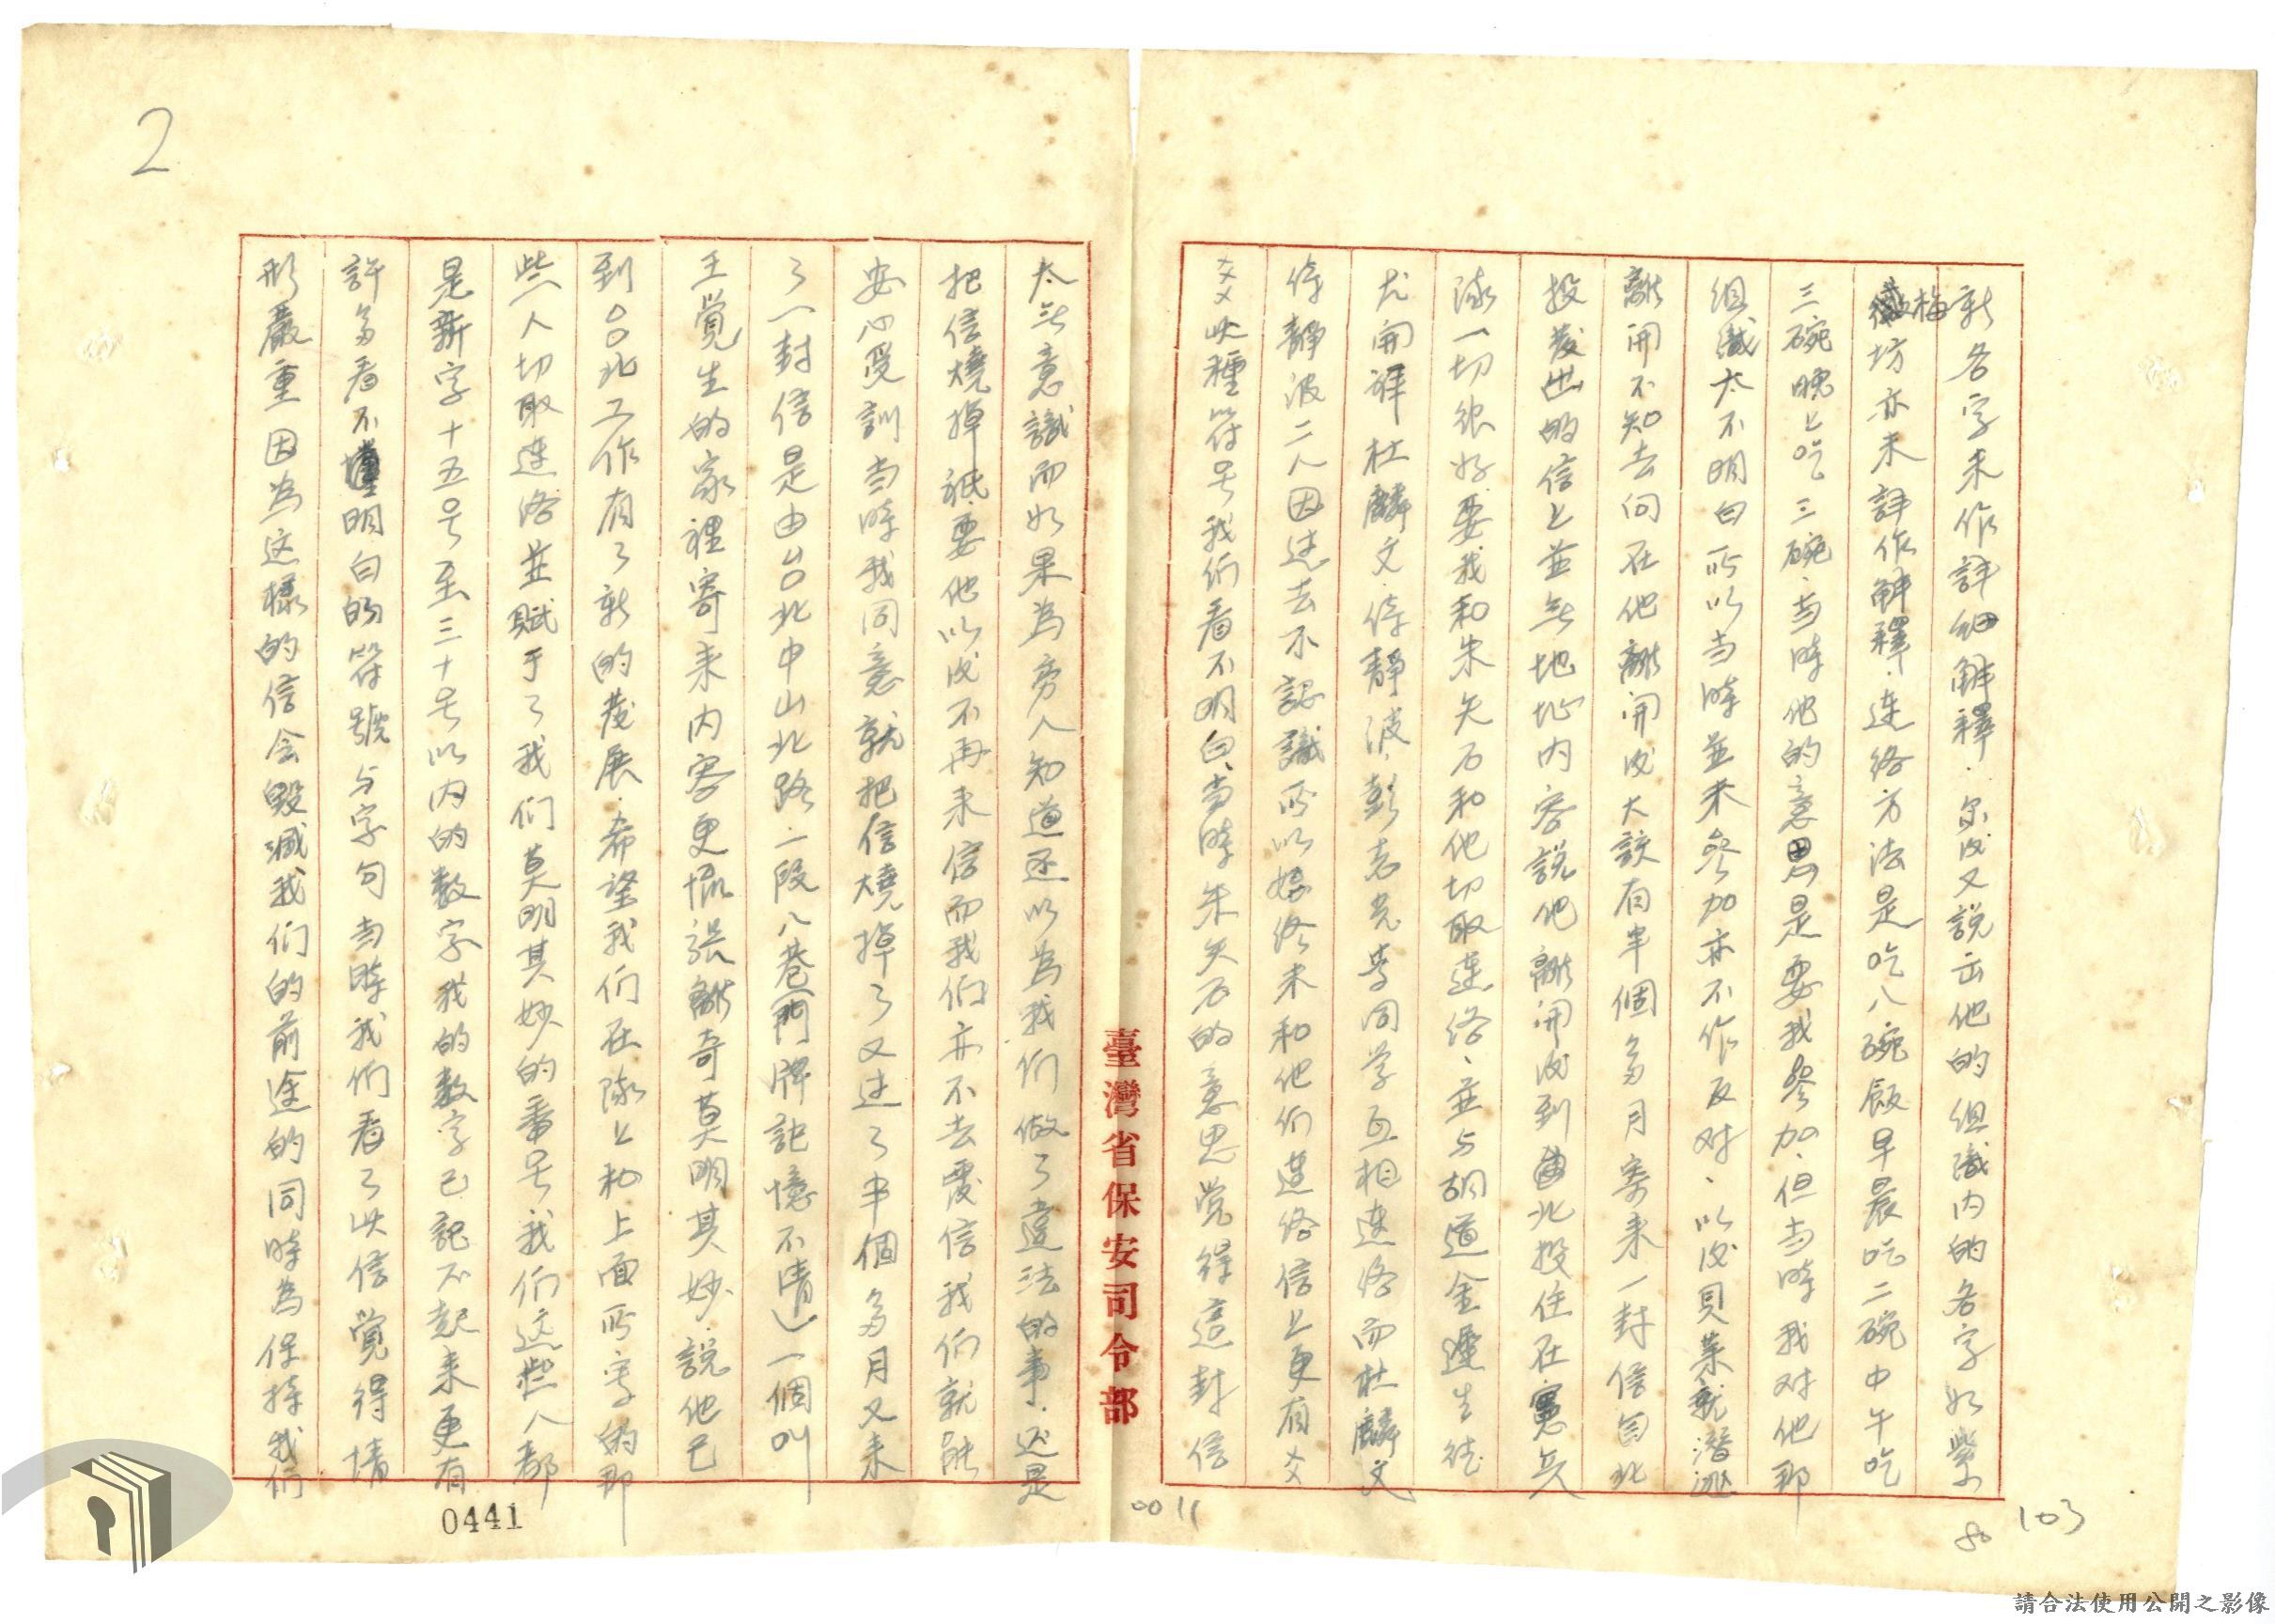 新各字未作詳細解釋.尔后又説出他的组織内的各字如紫
梅坊亦未詳作解釋.連络方法是吃八碗飯早晨吃二碗中午吃
三碗晚上吃三碗.当時他的意思是要我參加.但当時我对他那
组織太不明白所以当時並未參加亦不作反对、以后貝葉就潜逃
離開不知去向在他離開后大該有半個多月寄来一封信自北
投发出的信上並无地址内容説他離開后到北投住在憲兵
隊一切很好.要我和朱矢石和他切取連络、並与胡道金遲生從
尤開祥杜麟文.侍靜波.彭志光等同学互相連络而杜麟文
侍靜波二人因过去不認識所以始终未和他们連络信上更有㐅
㐅㐅此種符号我们看不明白、当時朱矢石的意思觉得這封信
太无意識而如果為旁人知道还以為我们做了違法的事.还是
把信燒掉祇要他以后不再来信而我们亦不去覆信我们就能
安心受訓当時我同意就把信燒掉了又过了半個多月又来
了一封信是由台北中山北路一段八巷(門牌記憶不清)一個叫
王覺生的家裡寄来内容更慌張離奇莫明其妙.説他已
到台北工作有了新的发展.希望我们在隊上和上面所寫的那
些人切取連络並賦于了我们莫明其妙的番号.我们这些人都
是新字十五号至三十号以内的数字我的数字已記不起来更有
許多看不懂明白的符號与字句当時我们看了此信覚得情
形嚴重因為这樣的信会毁滅我们的前途的同時為保持我们
臺灣省保安司令部
2
0441
0011
80
103
請合法使用公開之影像